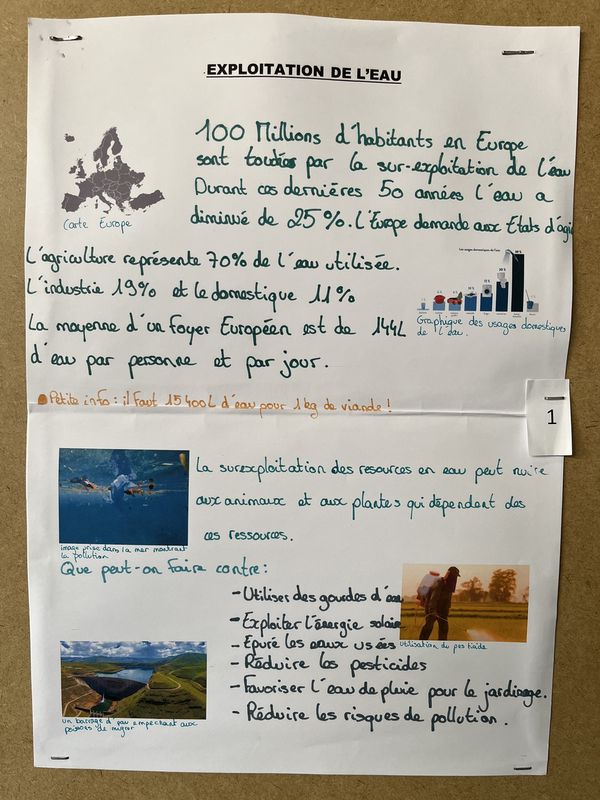 EXPLOITATION DE L'EAU
100 Millions d'habitants en Europe
sont toudiés par la sur-exploitation de l'eau
Durant ces dernières 50 années l'eau a
diminué de 25%. L'Europe demande aux Etats d'agi
Carte Europe
L'agriculture représente 70% de l'eau utilisée.
L'industrie 19% et le domestique 11%
La moyenne d'un foyer Européen est de 144L
d'eau par personne et par jour.
Graphique des usages domestiques
de l'eau.
Petite info : il faut 15400L d'eau pour 1kg de viande !
1
La surexploitation des resources en eau peut nuire
aux animaux et aux plantes qui dépendent des
ces ressources.
image prise dans la mer montrant
la pollution
Que peut-on faire contre :
- Utiliser des gourdes d'eau
- Exploiter l'énergie solaire
- Epuré les eaux usées
- Réduire les pesticides
- Favoriser l'eau de pluie pour le jardinage.
- Réduire les risques de pollution.
utilisation du pesticide
un barrage d'eau empechant aux
poissons de migrer